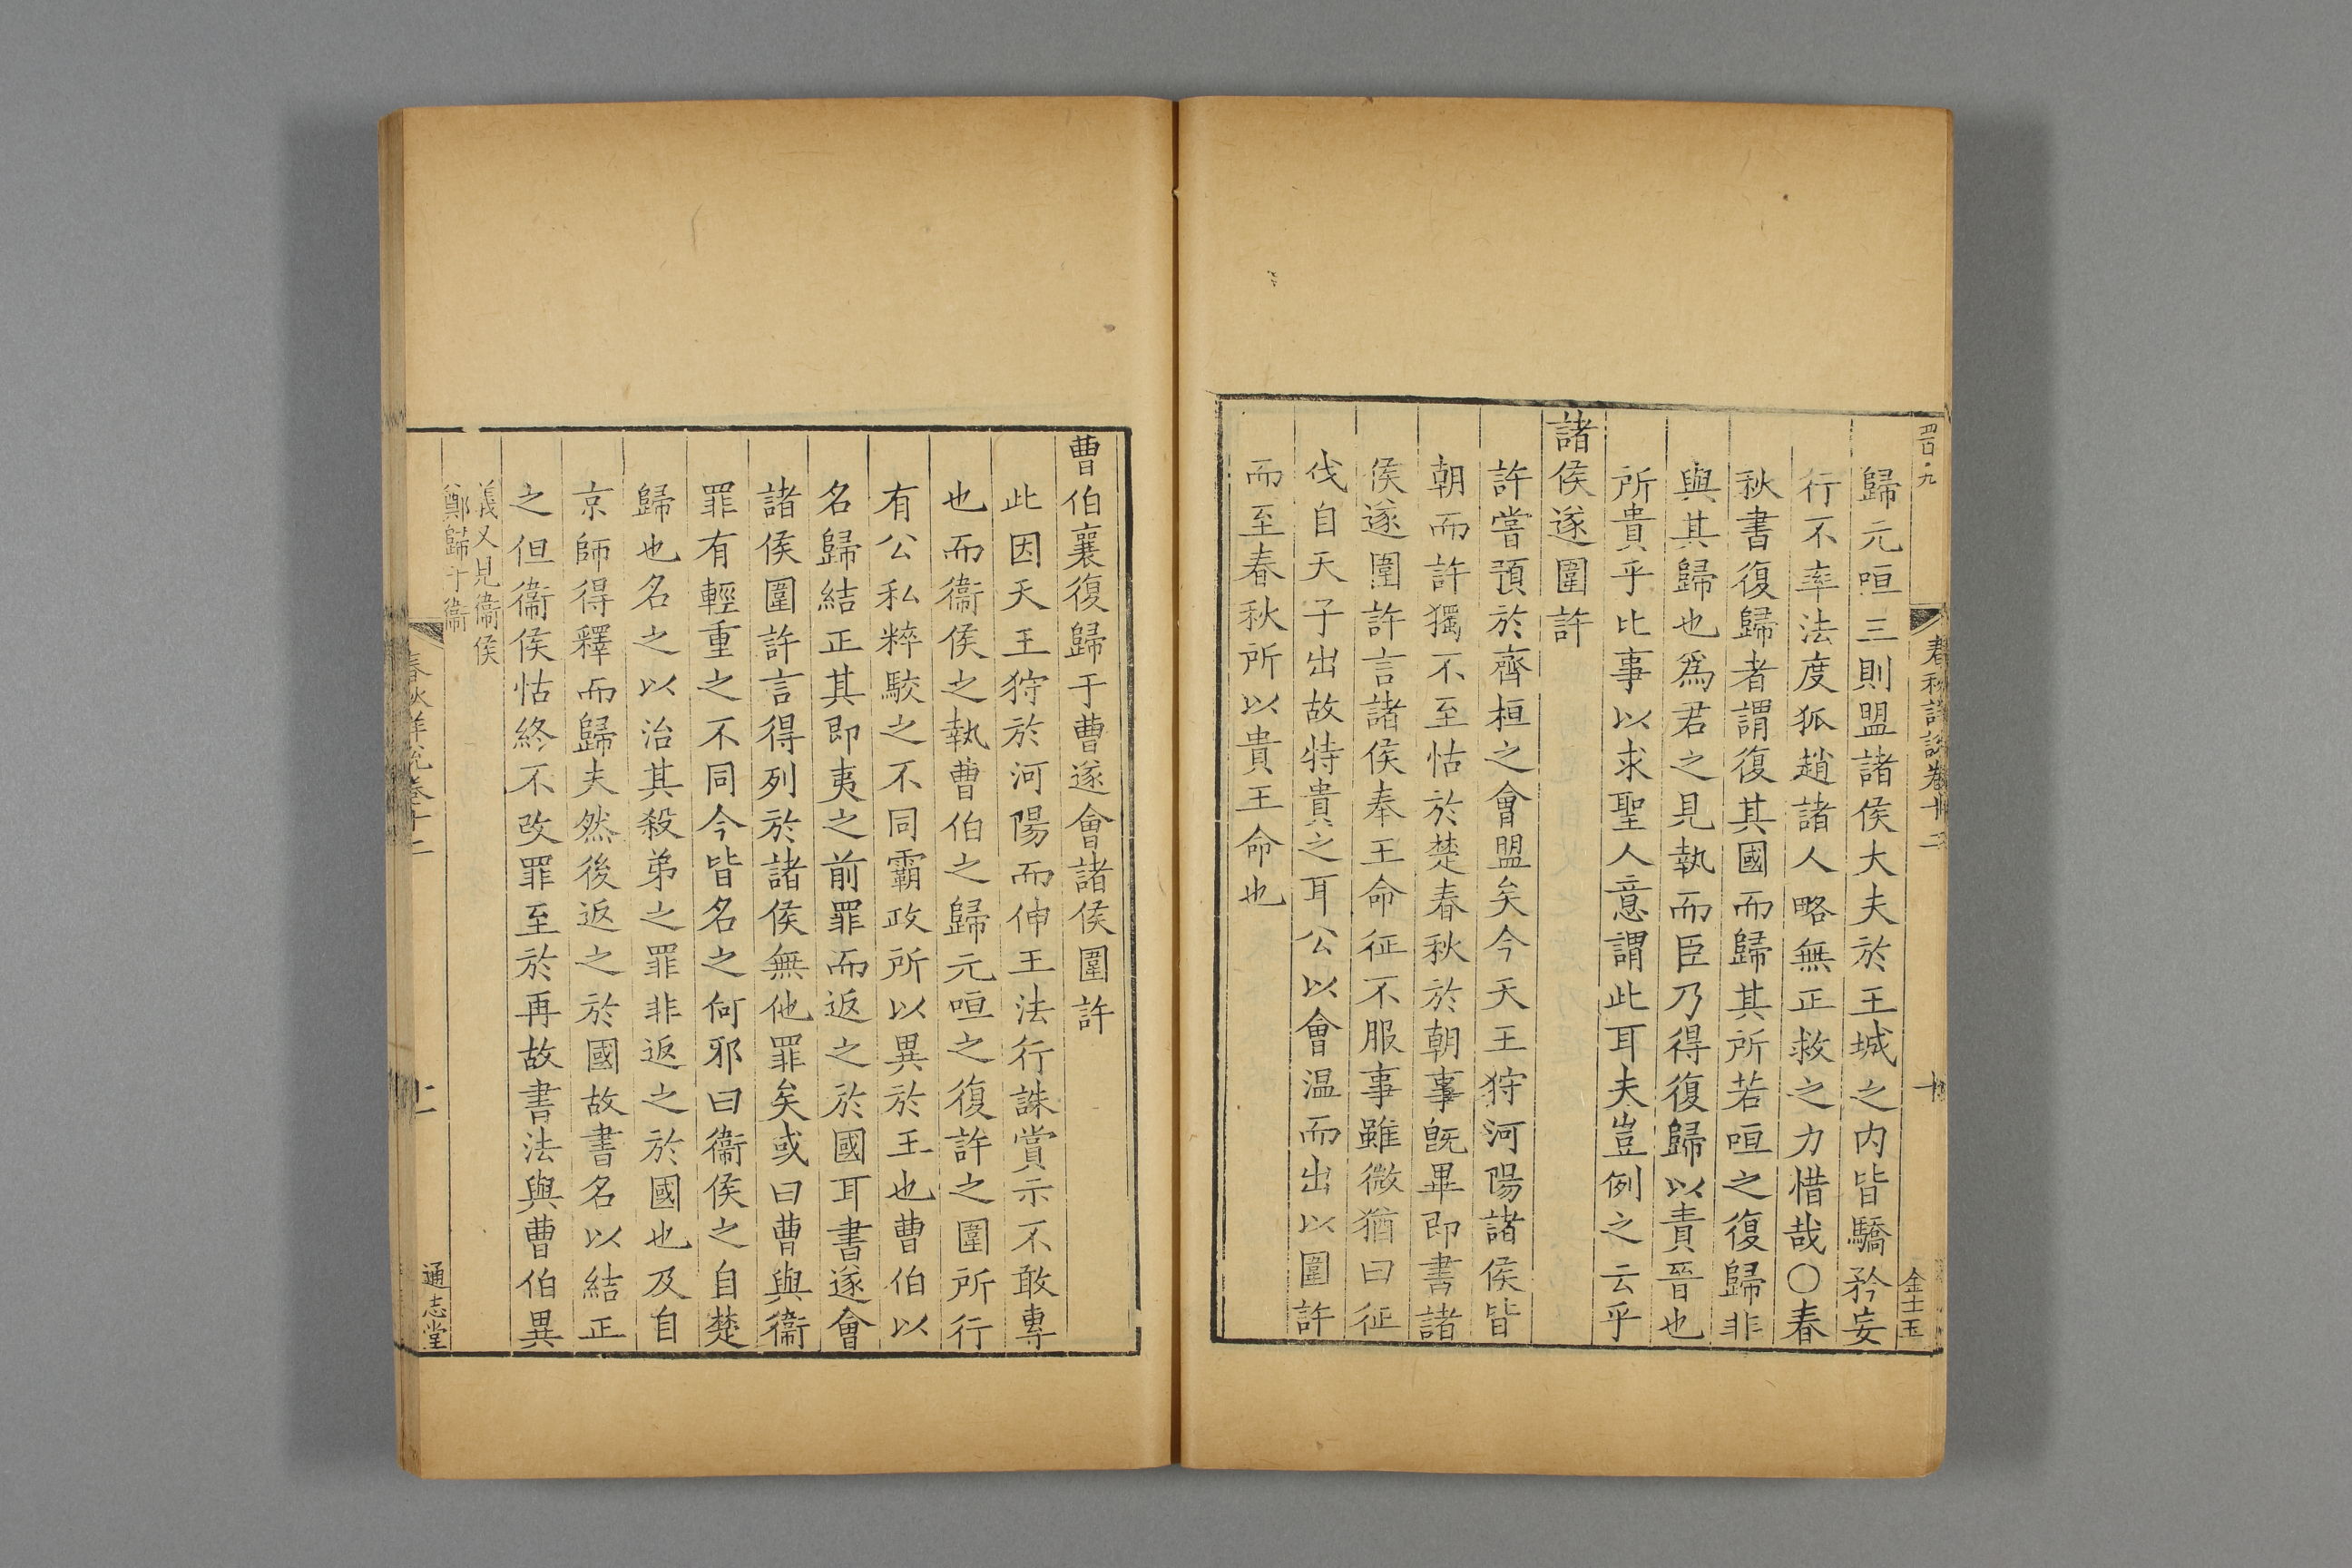 歸元咺三則盟諸侯大夫於王城之内皆驕矜妄
行不率法度狐趙諸人略無正救之力惜哉〇春
秋書復歸者謂復其國而歸其所若咺之復歸非
與其歸也爲君之見執而臣乃得復歸以責晉也
所貴乎比事以求聖人意謂此耳夫豈例之云乎
諸侯遂圍許
許嘗預於齊桓之會盟矣今天王狩河陽諸侯皆
朝而許獨不至怙於楚春秋於朝事旣畢即書諸
侯遂圍許言諸侯奉王命征不服事雖微猶曰征
伐自天子出故特貴之耳公以會温而出以圍許
而至春秋所以貴王命也
曹伯襄復歸于曹遂會諸侯圍許
此因天王狩於河陽而伸王法行誅賞示不敢專
也而衞侯之執曹伯之歸元咺之復許之圍所行
有公私粹駁之不同霸政所以異於王也曹伯以
名歸結正其即夷之前罪而返之於國耳書遂會
諸侯圍許言得列於諸侯無他罪矣或曰曹與衞
罪有輕重之不同今皆名之何邪曰衞侯之自楚
歸也名之以治其殺弟之罪非返之於國也及自
京師得釋而歸夫然後返之於國故書名以結正
之但衞侯怙終不改罪至於再故書法與曹伯異
義又見衞侯
鄭歸于衞
春秋詳說卷十二
通志堂
金士玉